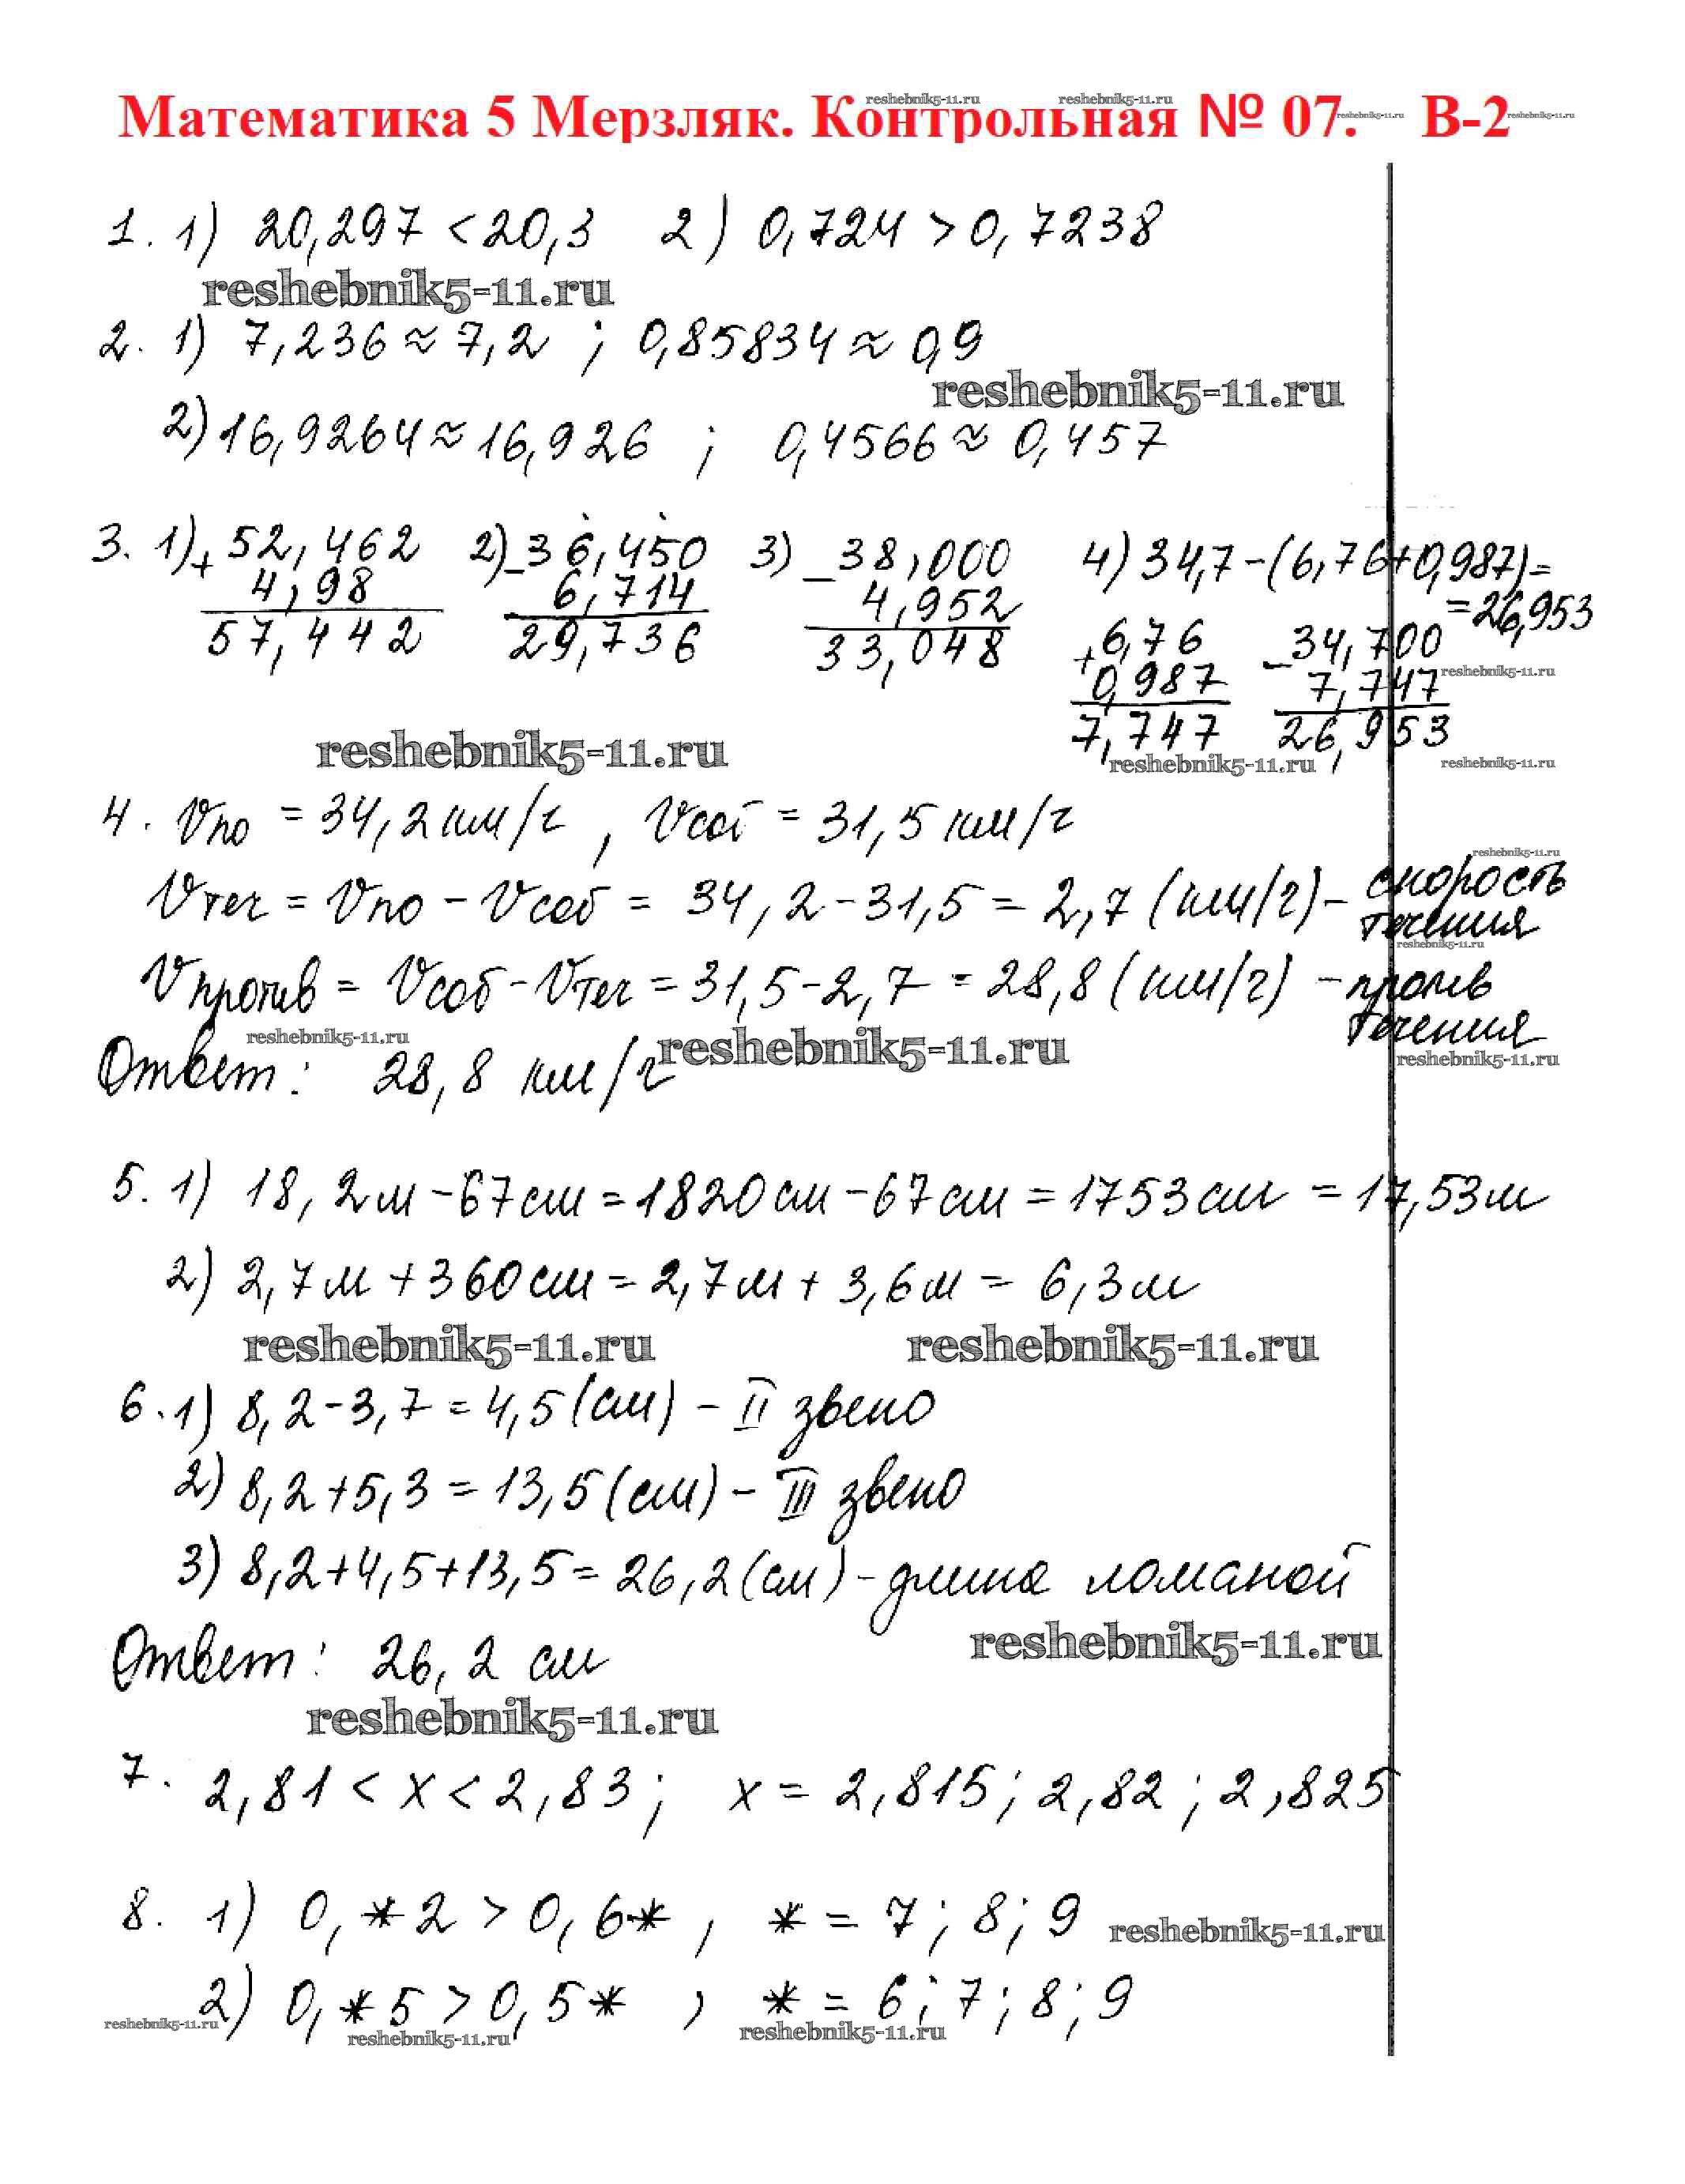 Математика 5 Мерзляк. Контрольная № 07. В-2
reshebnik5-11.ru reshebnik5-11.ru reshebnik5-11.ru reshebnik5-11.ru
1. 1) 20,297 < 20,3 2) 0,724 > 0,7238
reshebnik5-11.ru
2. 1) 7,236 ≈ 7,2 ; 0,85834 ≈ 0,9
reshebnik5-11.ru
2) 16,9264 ≈ 16,926 ; 0,4566 ≈ 0,457
3. 1) + 52,462 2) - 36,450 3) - 38,000 4) 34,7 - (6,76 + 0,987) =
4,98 6,714 4,952 = 26,953
57,442 29,736 33,048 + 6,76 - 34,700
0,987 7,747 reshebnik5-11.ru
7,747 26,953
reshebnik5-11.ru reshebnik5-11.ru reshebnik5-11.ru
4. Vпо = 34,2 км/г , Vсоб = 31,5 км/г
reshebnik5-11.ru
Vтеч = Vпо - Vсоб = 34,2 - 31,5 = 2,7 (км/г) - скорость
течения
reshebnik5-11.ru
Vпротив = Vсоб - Vтеч = 31,5 - 2,7 = 28,8 (км/г) - против
течения
reshebnik5-11.ru reshebnik5-11.ru reshebnik5-11.ru
Ответ: 28,8 км/г
5. 1) 18,2 м - 67 см = 1820 см - 67 см = 1753 см = 17,53 м
2) 2,7 м + 360 см = 2,7 м + 3,6 м = 6,3 м
reshebnik5-11.ru reshebnik5-11.ru
6. 1) 8,2 - 3,7 = 4,5 (см) - II звено
2) 8,2 + 5,3 = 13,5 (см) - III звено
3) 8,2 + 4,5 + 13,5 = 26,2 (см) - длина ломаной
reshebnik5-11.ru
Ответ: 26,2 см
reshebnik5-11.ru
7. 2,81 < x < 2,83; x = 2,815; 2,82; 2,825
8. 1) 0,*2 > 0,6* , * = 7; 8; 9
reshebnik5-11.ru
2) 0,*5 > 0,5* , * = 6; 7; 8; 9
reshebnik5-11.ru reshebnik5-11.ru reshebnik5-11.ru